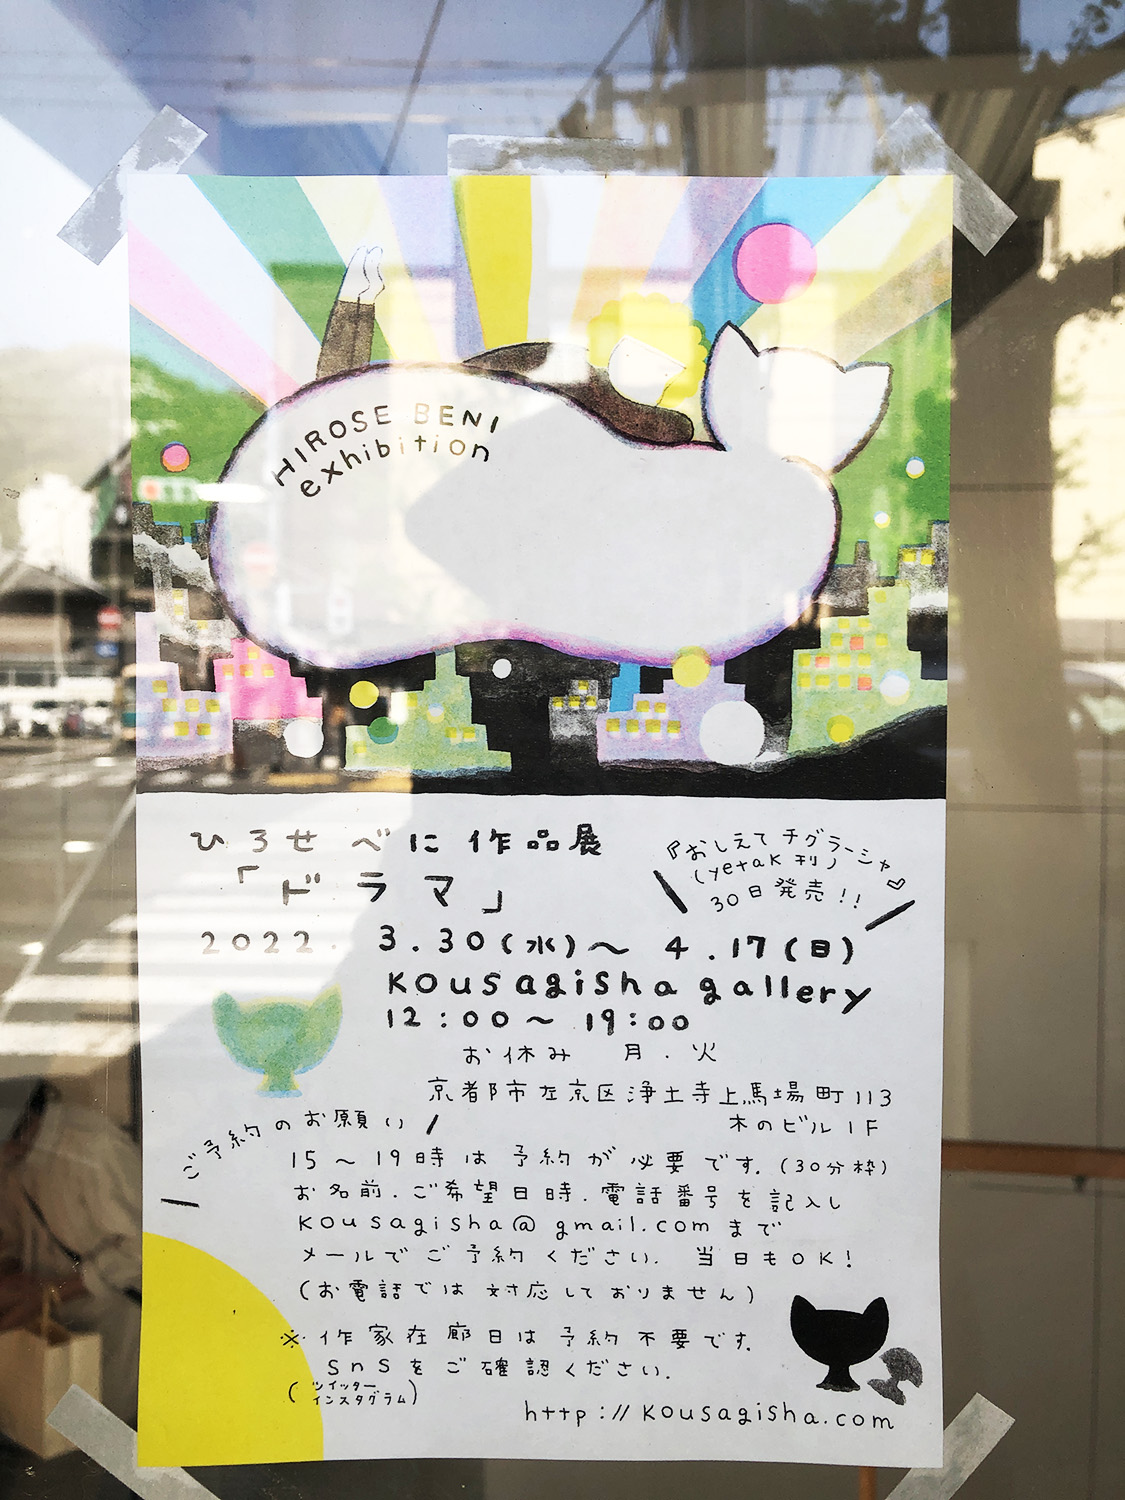 HIROSE BENI
exhibition
ひろせべに作品展
「ドラマ」
『おしえてチグラーシャ♡
(yetak刊)
30日発売!!
2022. 3.30(水)〜 4.17(日)
kousagisha gallery
12:00〜 19:00
お休み 月.火
京都市左京区浄土寺上馬場町113
木のビル1F
ご予約のお願い
15〜19時は予約が必要です.(30分枠)
お名前.ご希望日時.電話番号を記入し
kousagisha@gmail.comまで
メールでご予約ください. 当日もOK!
(お電話では対応しておりません)
※作家在廊日は予約不要です.
snsをご確認ください.
(ツイッター
インスタグラム)
http://kousagisha.com